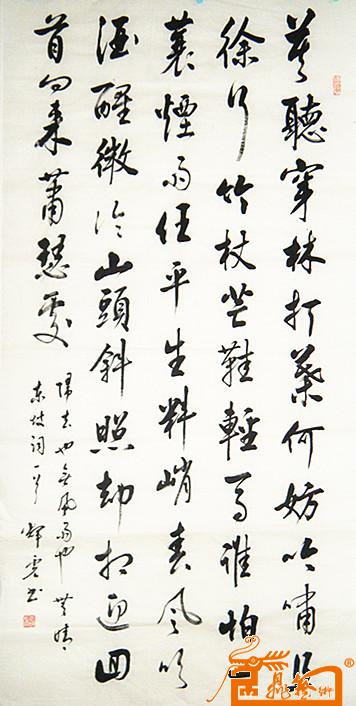 莫聽穿林打葉何妨吟嘯且
徐行竹杖芒鞋輕馬誰怕一
蓑煙雨任平生料峭春風吹
酒醒微冷山頭斜照却相迎回
首向來蕭瑟處
歸去也無風雨也無晴
東坡詞一首 书